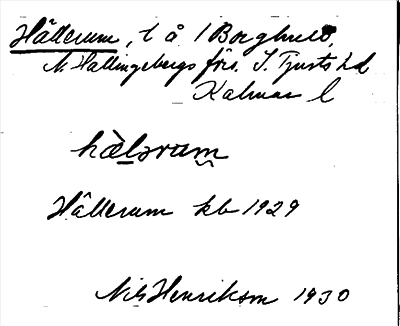 Hällerum, t å /Borghult,
N. Hallingebergs förs. S. Tjusts hd
Kalmar l
hàlərum
Hällerum kb 1929
Nils Henrikson 1930